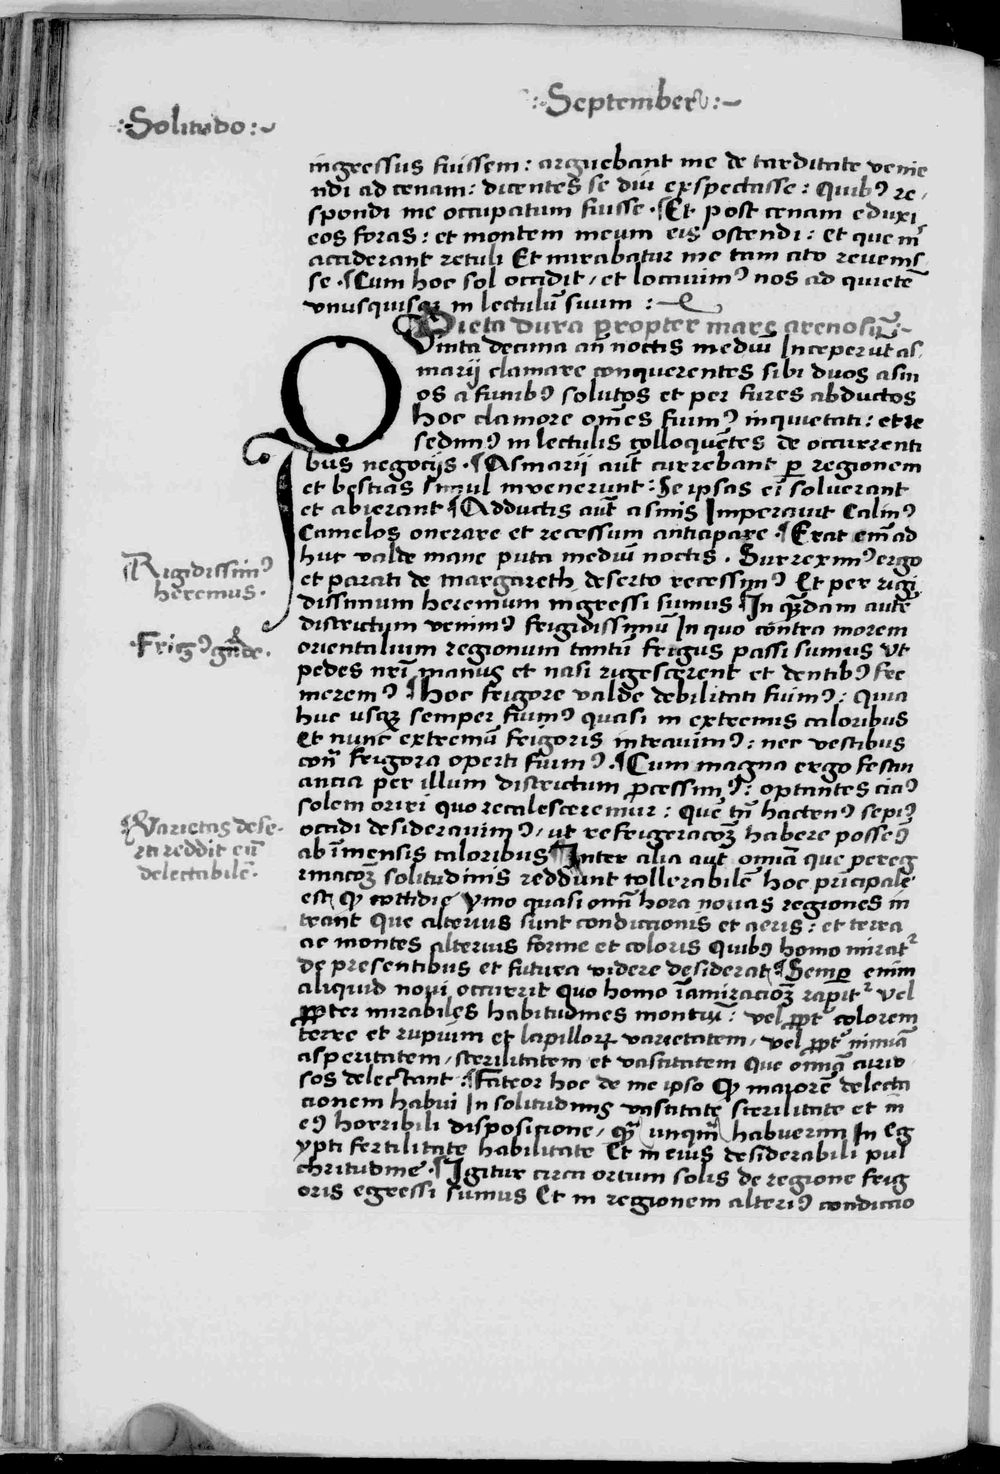 :September:~
:Solitudo:~
ingressus fuissem: arguebant me de tarditate venie
ndi ad cenam: dicentes se diu exspectasse: Quibꝰ re,
spondi me occupatum fuisse. ¶Et post cenam eduxi
eos foras: et montem meum eis ostendi: et que m̄
acciderant retuli Et mirabatur me tam cito revenis,
se. ¶Cum hoc sol occidit, et locauimꝰ nos ad quietē
vnusquisqꝫ in lectulū suum :~
Dieta dura propter mare arenosū~
Quinta decima an̄ noctis mediū Inceperūt as,
marij clamare conquerentes sibi duos asin
os a funibꝰ solutos et per fures abductos
hoc clamore om̄es fuimꝰ inquietati: et re
sedimꝰ in lectulis colloquētes de occurrenti
bus negocijs. ¶Asinarii aūt currebant ꝑ regionem
et bestias simul invenerunt: Se ipsas ei̅ soluerant
et abierant ¶Adductis aūt asinis Imperauit Calinꝰ
Camelos onerare et recessum anticipare. ¶Erat em̄ ad
huc valde mane puta mediū noctis. Surreximꝰ ergo
et parati de margareth deserto recessimꝰ Et per rigi
dissimum heremum ingressi sumus ¶In quādam autē
districtum venimꝰ frigidissimū In quo contra morem
orientalium regionum tantū frigus passi sumus vt
pedes nr̄i manus et nasi rigescerent et dentibꝰ fre
meremꝰ ¶hoc frigore valde debilitati fuimꝰ: Quia
huc usqꝫ semper fuimꝰ quasi in extremis caloribus
Et nunc extremū frigoris intrauimꝰ: nec vestibus
con̄ frigora operti fuimꝰ. ¶Cum magna ergo festin
antia per illum districtum ꝓcessimꝰ: optantes ciaꝰ
solem oriri quo recalesceremur: Que tn̄ hactenꝰ sepiꝰ
occidi desiderauimꝰ, ut refrigeracōꝫ habere possēꝰ
ab īmensis caloribus ¶Inter alia aut omīa que pereg
rinacōꝫ solitudinis reddunt tollerabilē hoc prīcipale
est qꝫ cottidie ymo quasi omī hora nouas regiones in
trant Que alterius sunt condiccionis et aeris: et terra
ac montes alterius forme et coloris Quibꝰ homo miratᷣ
de presentibus et futura videre desiderat ¶Semꝑ enim
aliquid noui occurrit Quo homo īamiracioꝫ rapitᷣ vel
ꝓpter mirabiles habitudines montiū: vel ꝓptᷣ colorem
terre et rupium et lapilloꝝ varietatem, vel ꝓptᷣ nimiā
asperitatem, sterilitatem et vastitatem Que omīa curio
sos delectant: ¶Fateor hoc de me ipso qꝫ maiorē delecta
cionem habui In solitudinis vastitate sterilitate et in
eꝰ horribili disposicione, quā unquā habuerim In Eg
ypti fertilitate habilitate Et in eius desiderabili pul
chritudine. ¶Igitur circa ortum solis de regione frig
oris egressi sumus Et in regionem alteriꝰ condiccio
¶Rigidissimꝰ
heremus.
Frigꝰ gr̄de.
¶Varietas dese.
rti reddit eū
delectabilē.